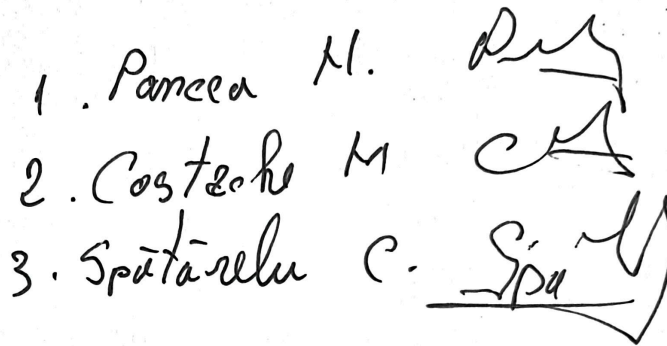 1. Pancea M.
2. Costache M
3. Spătărelu C.